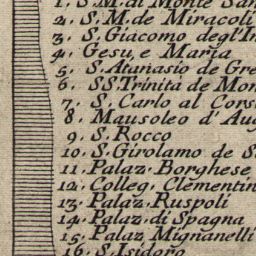 1. S. M. di Monte San
2. S. M. de Miracoli
3. S. Giacomo degl'In
4. Gesu, e Maria
5. S. Atanasio de Gre
6. SS. Trinità de Mon
7. S. Carlo al Corso
8. Mausoleo d' Aug
9. S. Rocco
10. S. Girolamo de S
11. Palaz. Borghese
12. Colleg. Clementin
13. Palaz. Ruspoli
14. Palaz. di Spagna
15. Palaz. Mignanelli
16. S. Isidoro